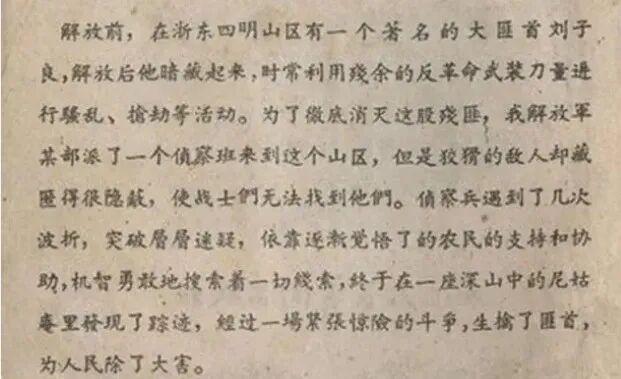 解放前，在浙东四明山区有一个著名的大匪首刘子
良，解放后他暗藏起来，时常利用殘余的反革命武装刀量进
行骚乱、搶劫等活动。为了徹底消灭这股殘匪，我解放軍
某部派了一个偵察班来到这个山区，但是狡猾的敌人却藏
匿得很隐蔽，使战士們无法找到他們。偵察兵遇到了几次
波折，突破層層迷疑，依靠逐渐覚悟了的农民的支持和协
助，机智勇敢地搜索着一切綫索，終于在一座深山中的尼姑
庵里發現了踪迹，經过一場緊張惊險的斗爭，生擒了匪首，
为人民除了大害。